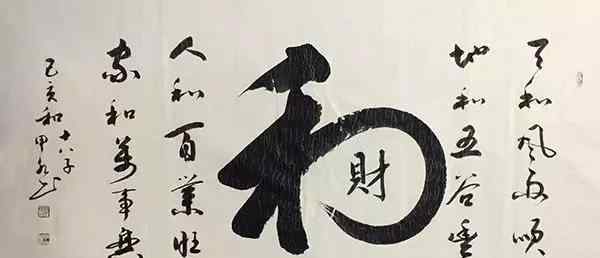 天和风雨順
地和五谷豐
和
財
人和百業旺
家和萬事興
己亥和
十八子
甲